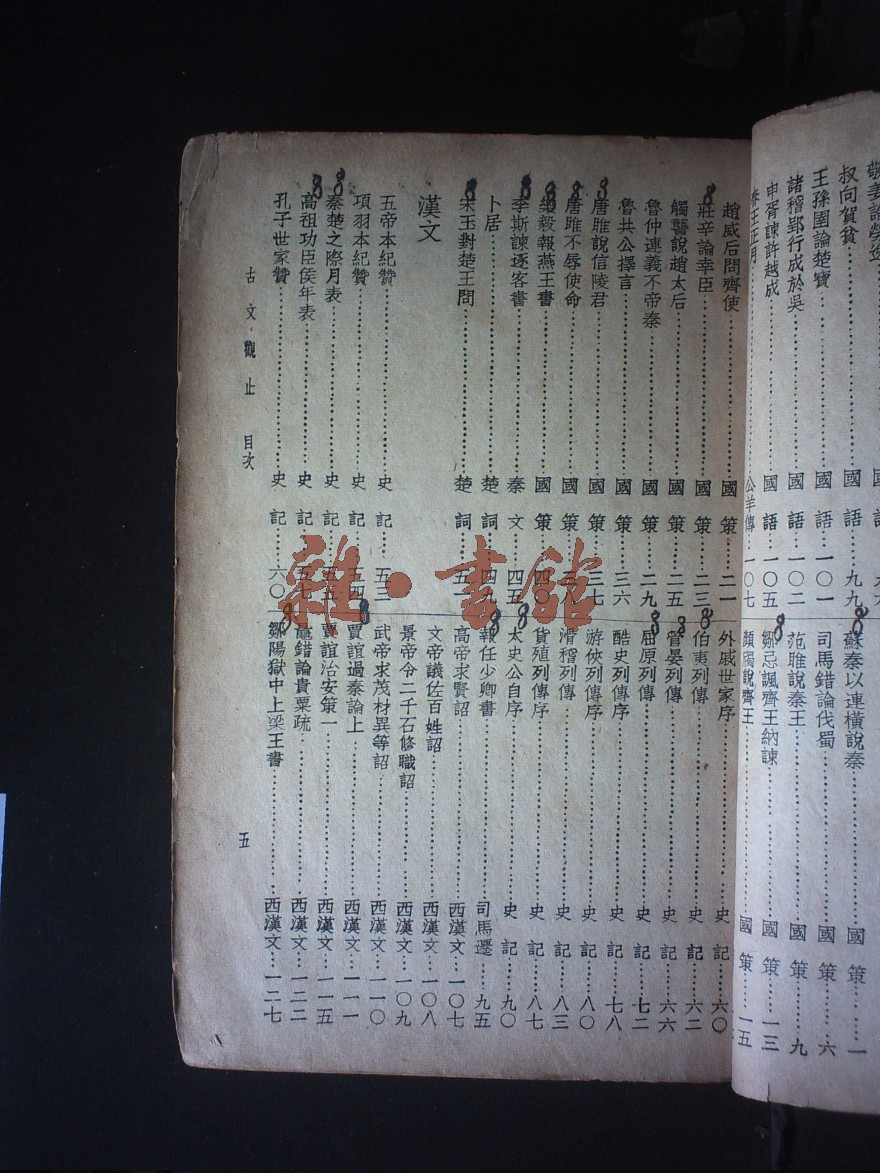 叔向賀貧 國語 九九
王孫圉論楚寶 國語 一〇一
諸稽郢行成於吳 國語 一〇二
申胥諫許越成 國語 一〇五
公羊傳 一〇七
蘇秦以連橫說秦 國策 一
司馬錯論伐蜀 國策 六
范雎說秦王 國策 九
鄒忌諷齊王納諫 國策 一三
顏斶說齊王 國策 一五
趙威后問齊使 國策 二一
莊辛論幸臣 國策 二三
觸讋說趙太后 國策 二五
魯仲連義不帝秦 國策 二九
魯共公擇言 國策 三六
唐雎說信陵君 國策 三七
唐雎不辱使命 國策 三八
樂毅報燕王書 國策 四〇
李斯諫逐客書 秦文 四五
卜居 楚詞 四九
宋玉對楚王問 楚詞 五一
漢文
五帝本紀贊 史記 五三
項羽本紀贊 史記 五四
秦楚之際月表 史記 五五
高祖功臣侯年表 史記 五七
孔子世家贊 史記 六〇
外戚世家序 史記 六〇
伯夷列傳 史記 六二
管晏列傳 史記 六六
屈原列傳 史記 七二
酷吏列傳序 史記 七八
游俠列傳序 史記 八〇
滑稽列傳 史記 八三
貨殖列傳序 史記 八七
太史公自序 史記 九〇
報任少卿書 司馬遷 九五
高帝求賢詔 西漢文 一〇七
文帝議佐百姓詔 西漢文 一〇八
景帝令二千石修職詔 西漢文 一〇九
武帝求茂材異等詔 西漢文 一一〇
賈誼過秦論上 西漢文 一一一
賈誼治安策一 西漢文 一一五
鼂錯論貴粟疏 西漢文 一二二
鄒陽獄中上梁王書 西漢文 一二七
古文觀止 目次
五
雜·書館